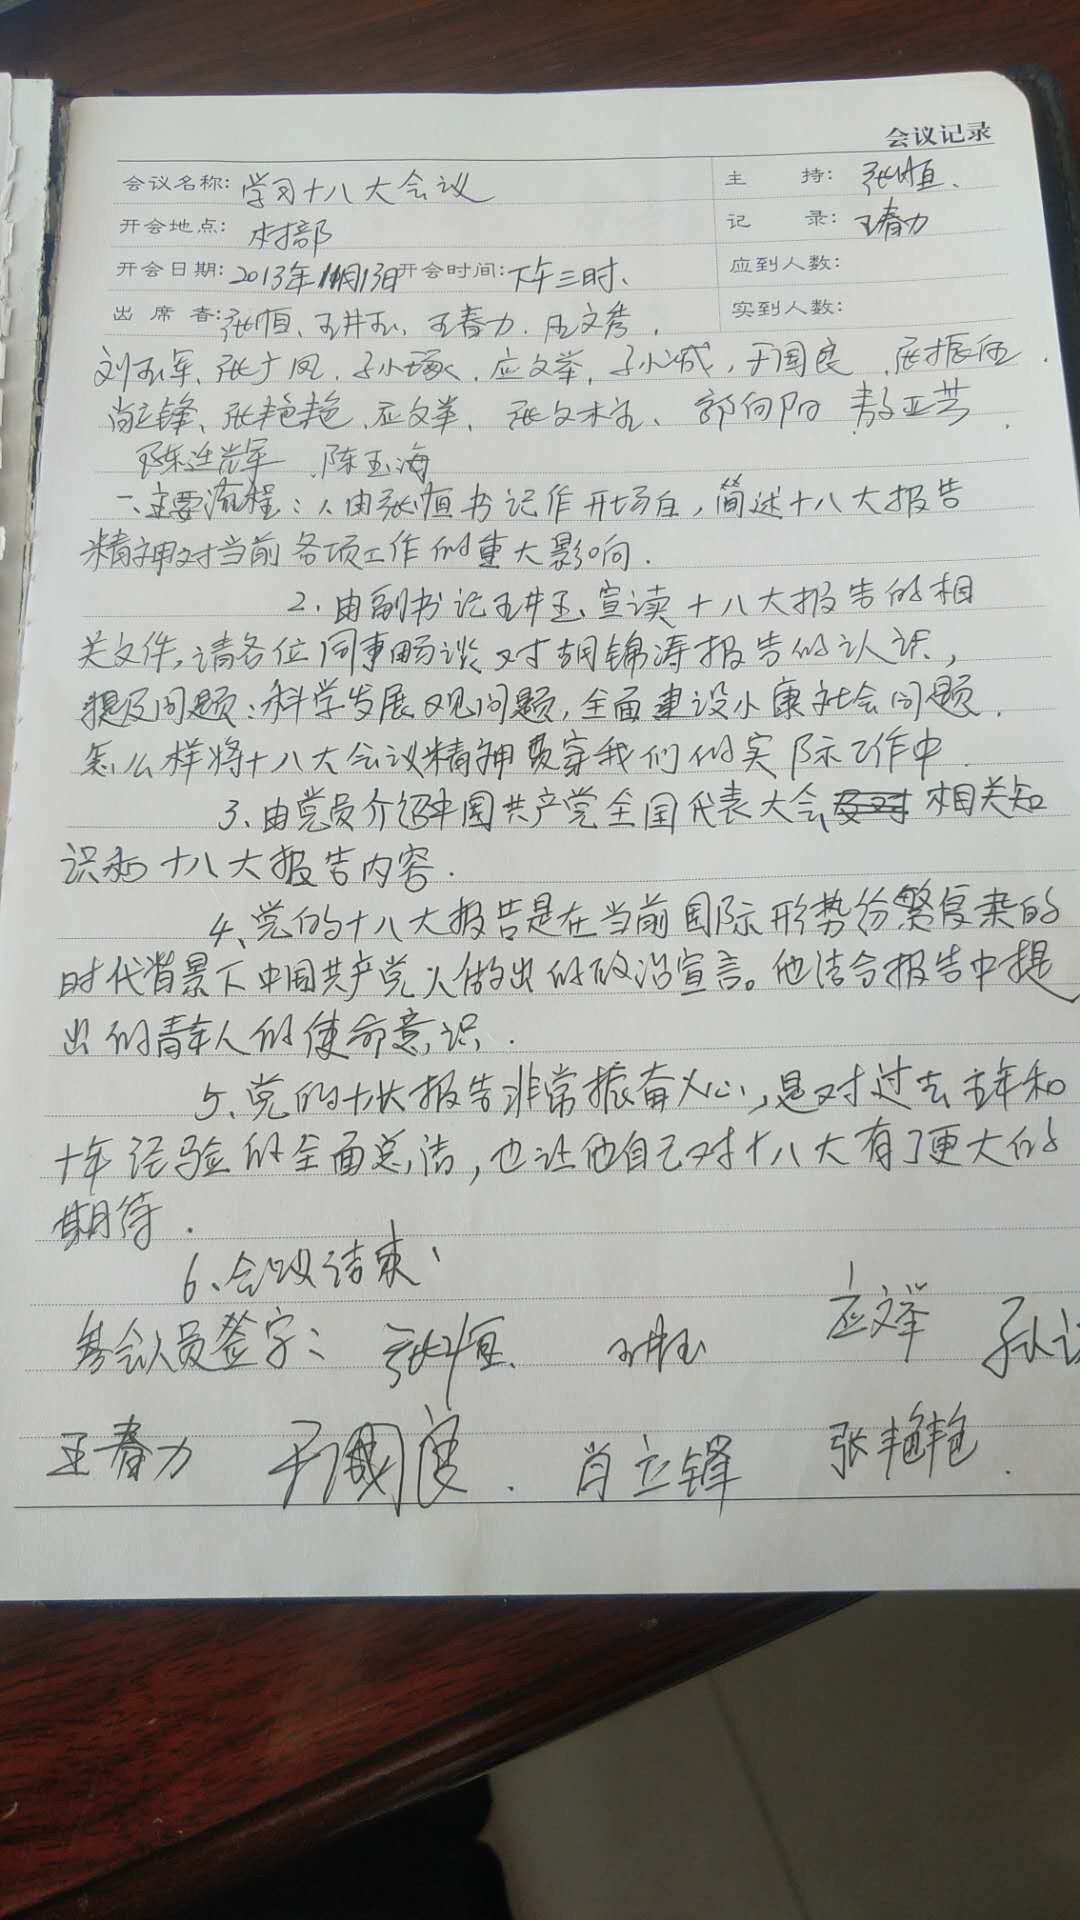 会议记录
会议名称: 学习十八大会议 主 持: 张恒.
开会地点: 村部 记 录: 王春力
开会日期: 2013年11月13日 开会时间: 下午三时. 应到人数:
出 席 者: 张恒、王井玉、王春力. 实到人数:
刘玉军、张广凤. 应文举, 于国良
肖立锋、张艳艳. 应文举、 郭向阳
陈玉海
一、主要流程: 1.由张恒书记作开场白, 简述十八大报告
精神对当前各项工作的重大影响.
2. 由副书记王井玉宣读十八大报告的相
关文件, 请各位同事畅谈对胡锦涛报告的认识,
提及问题: 科学发展观问题, 全面建设小康社会问题.
怎么样将十八大会议精神贯穿我们的实际工作中.
3、由党员介绍中国共产党全国代表大会 相关知
识和十八大报告内容.
4、党的十八大报告是在当前国际形势纷繁复杂的
时代背景下中国共产党人做出的政治宣言。他结合报告中提
出的青年人的使命意识.
5、党的十八大报告非常振奋人心, 是对过去五年和
十年经验的全面总结, 也让他自己对十八大有了更大的
期待.
6、会议结束、
参会人员签字: 张恒. 王井玉 应文举
王春力 于国良. 肖立锋 张艳艳.